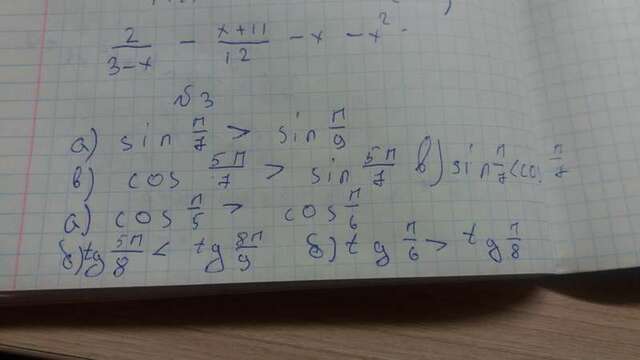 2/(3-x) - (x+11)/12 - x - x².
№3
а) sin π/7 > sin π/9
в) cos 5π/7 > sin 5π/7 в) sin π/7 < cos π/7
а) cos π/5 > cos π/6
б) tg 5π/8 < tg 8π/9 б) tg π/6 > tg π/8